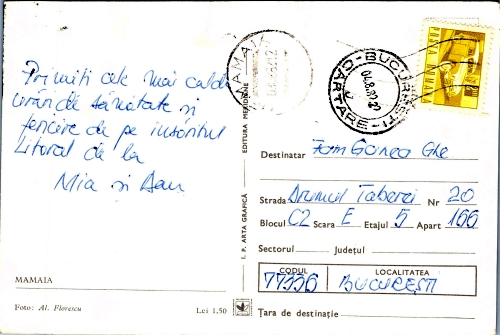 Primiți cele mai calde
urări de sănătate și
fericire de pe însoritul
litoral de la
Mia și Dan
MAMAIA
Foto: Al. Florescu
Lei 1,50
I. P. ARTA GRAFICĂ
EDITURA MERIDIANE
MAMAIA
BUCUREȘTI
CARTARE
POSTA ROMANA
Destinatar Fam Gainea Ghe
Strada Drumul Taberei Nr 20
Blocul C2 Scara E Etajul 5 Apart 166
Sectorul Județul
CODUL LOCALITATEA
77556 BUCUREȘTI
Țara de destinație